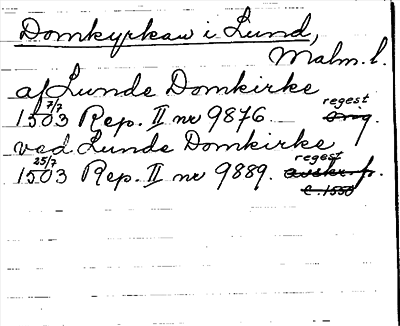 Domkyrkan i Lund,
Malm. l.
af Lunde Domkirke
1503 7/7 Rep. II nr 9876. regest orig.
ved Lunde Domkirke
1503 25/7 Rep. II nr 9889. regest avskr. f.
c. 1550